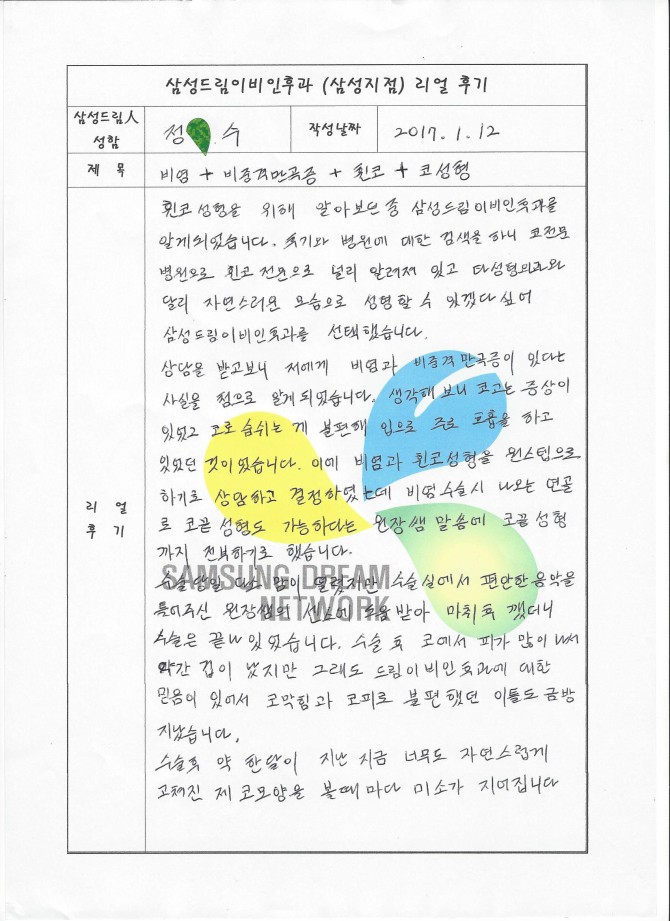 삼성드림이비인후과 (삼성지점) 리얼 후기
삼성드림人
성함
정 수
작성날짜
2017. 1. 12
제 목
비염 + 비중격만곡증 + 휜코 + 코성형
휜코 성형을 위해 알아보던 중 삼성드림이비인후과를
알게되었습니다. 후기와 병원에 대한 검색을 하니 코전문
병원으로 휜코 전문으로 널리 알려져 있고 타성형외과와
달리 자연스러운 모습으로 성형할 수 있겠다 싶어
삼성드림이비인후과를 선택했습니다.
상담을 받고보니 저에게 비염과 비중격만곡증이 있다는
사실을 첨으로 알게되었습니다. 생각해 보니 코고는 증상이
있었고 코로 숨쉬는 게 불편해 입으로 주로 호흡을 하고
있었던 것이었습니다. 이에 비염과 휜코성형을 원스텝으로
하기로 상담하고 결정하였는데 비염수술시 나오는 연골
로 코끝 성형도 가능하다는 원장쌤 말씀에 코끝성형
까지 전부하기로 했습니다.
수술당일 다소 맘이 떨렸지만 수술실에서 편안한 음악을
틀어주신 원장쌤의 센스에 도움 받아 마취후 깼더니
수술은 끝나 있었습니다. 수술 후 코에서 피가 많이 나서
약간 겁이 났지만 그래도 드림이비인후과에 대한
믿음이 있어서 코막힘과 코피로 불편했던 이틀도 금방
지났습니다.
수술후 약 한달이 지난 지금 너무도 자연스럽게
고쳐진 제 코모양을 볼때마다 미소가 지어집니다
리 얼
후 기
SAMSUNG DREAM
NETWORK